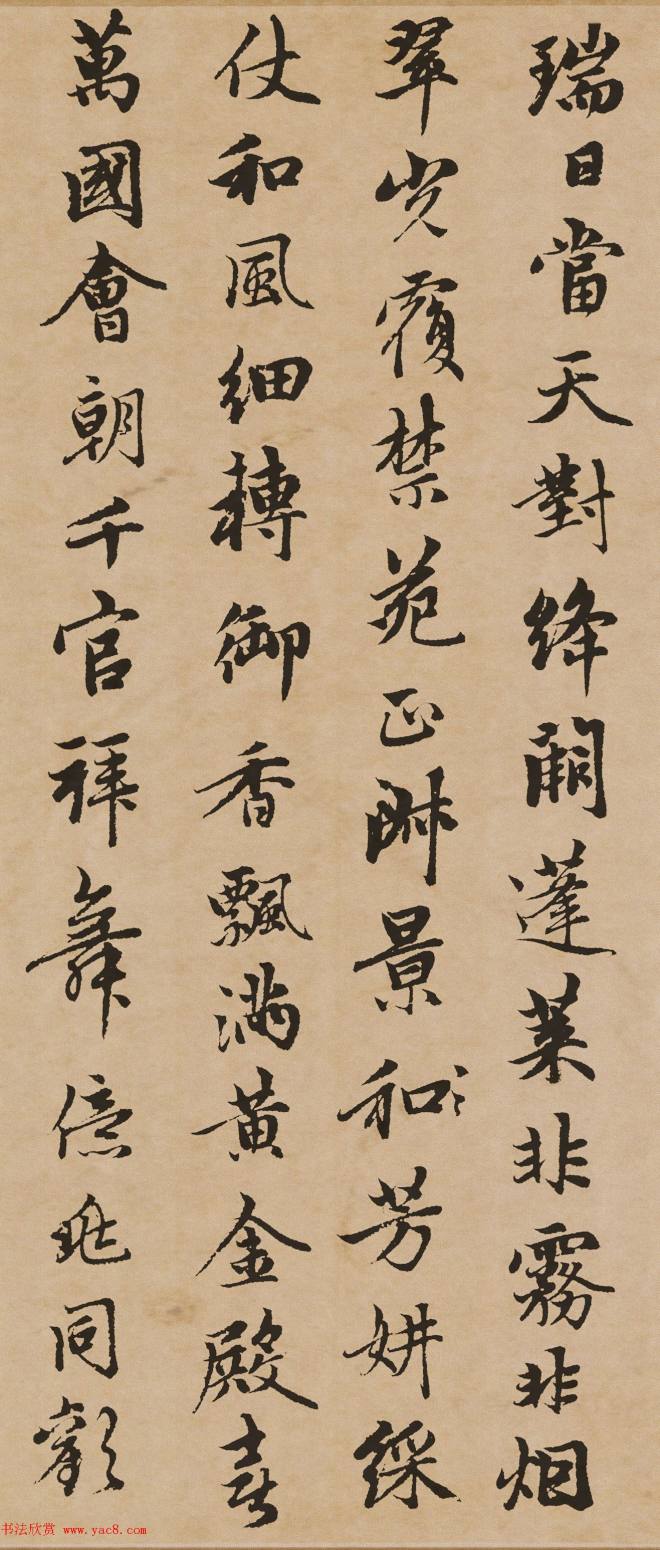 瑞日當天對絳闕蓬萊非霧非烟
翠光覆禁苑正淑景和芳妍綵
仗和風細轉御香飄滿黄金殿喜
萬國會朝千官拜舞億兆同歡
书法欣赏 www.yac8.com